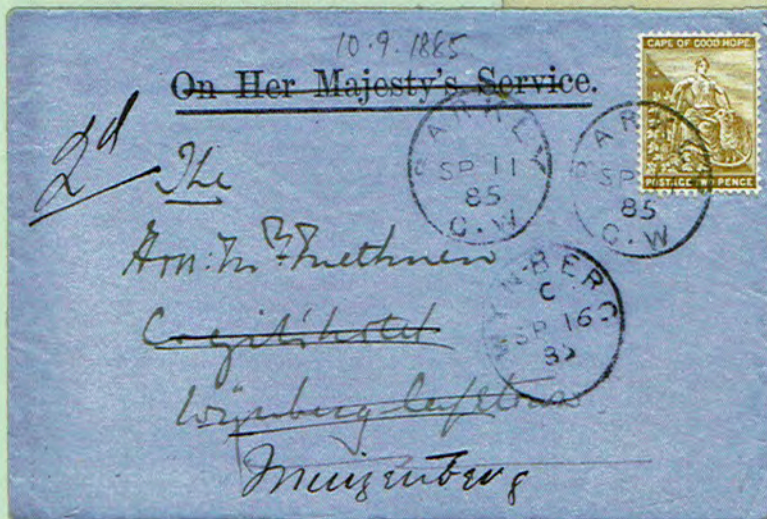 10.9.1885
On Her Majesty's Service.
CAPE OF GOOD HOPE.
POSTAGE TWO PENCE
2d
The
BARKLY
SP 11
85
C.W
BAR
SP
85
C.W
Hon: Mrs Methuen
WYNBERG
C
SP 16
85
hotel
Wynberg
Muizenberg